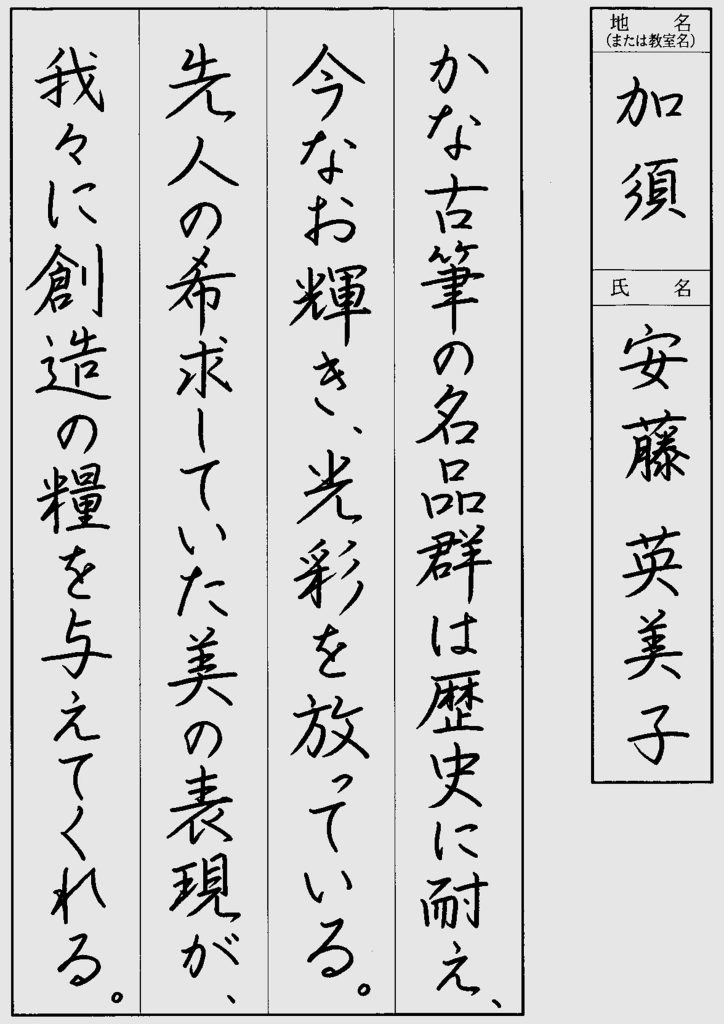 地名
(または教室名)
加須
氏名
安藤 英美子
かな古筆の名品群は歴史に耐え、
今なお輝き、光彩を放っている。
先人の希求していた美の表現が、
我々に創造の糧を与えてくれる。